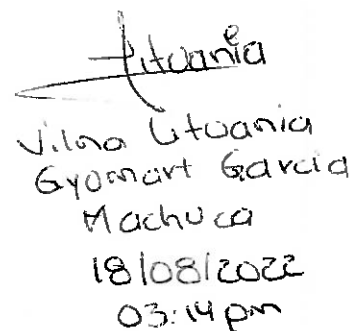 Lituania
Vilma Lituania
Gyomart Garcia
Machuca
18/08/2022
03:14 pm